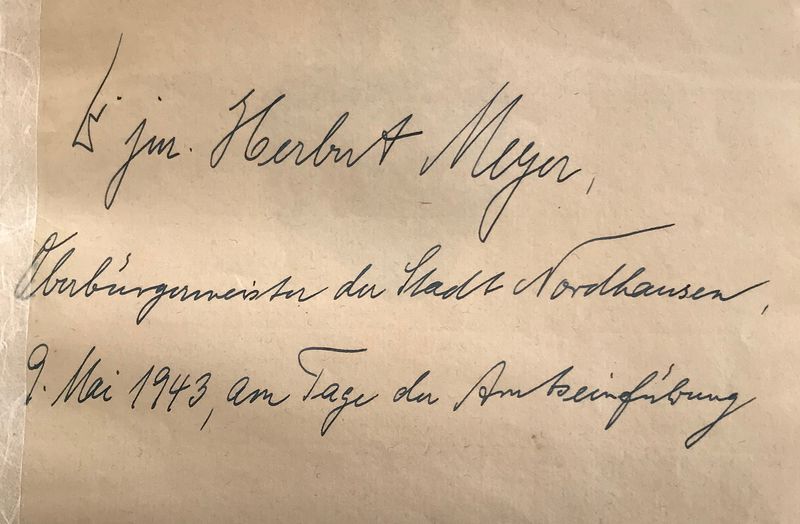 Dr. jur. Herbert Meyer,
Oberbürgermeister der Stadt Nordhausen,
9. Mai 1943, am Tage der Amtseinführung